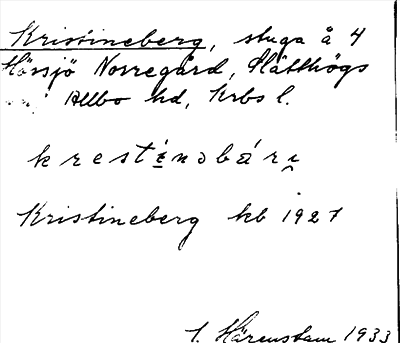 Kristineberg, stuga å 4
Hössjö Norregård, Slätthögs
Allbo hd, Krbs l.
krestinəbärı
Kristineberg kb 1927
1. Härenstam 1933